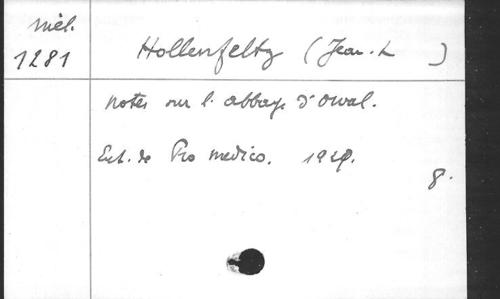 Mél. Hollenfeltz (Jean-L )
1281
Notes sur l'abbaye d'Orval.
Ext. de Pro medico. 1929.
8.